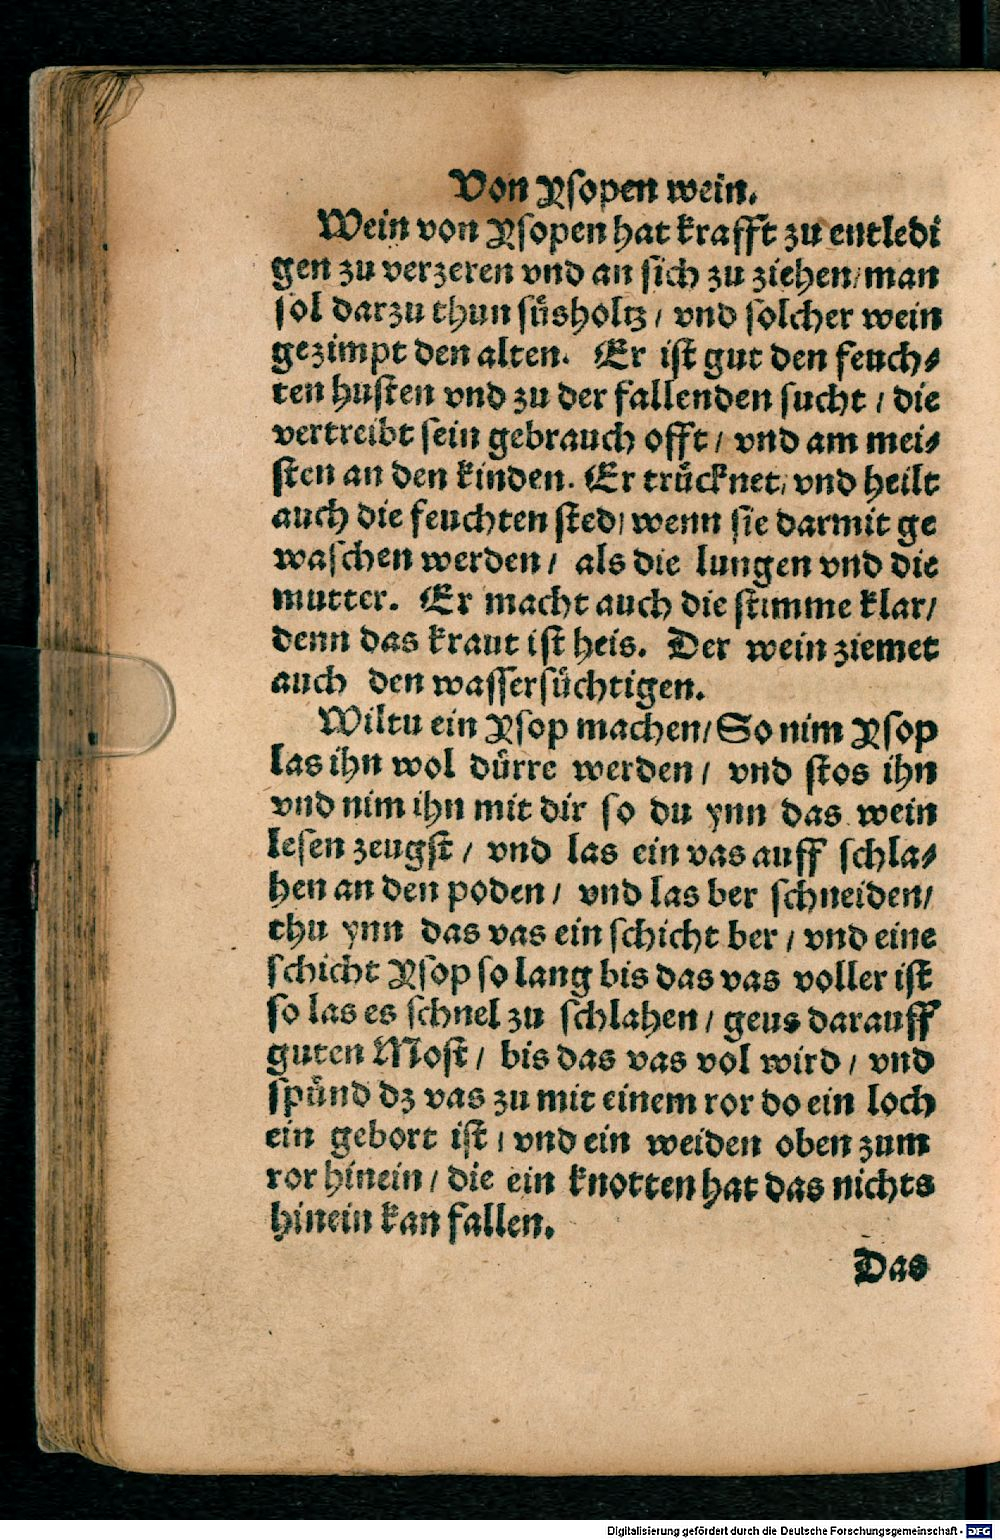 Von Ysopen wein.
Wein von Ysopen hat krafft zu entledi
gen zu verzeren vnd an sich zu ziehen/ man
sol darzu thun süsholtz / vnd solcher wein
gezimpt den alten. Er ist gut den feuch⸗
ten husten vnd zu der fallenden sucht / die
vertreibt sein gebrauch offt / vnd am mei⸗
sten an den kinden. Er trücknet/ vnd heilt
auch die feuchten sted/ wenn sie darmit ge
waschen werden / als die lungen vnd die
mutter. Er macht auch die stimme klar/
denn das kraut ist heis. Der wein ziemet
auch den wassersüchtigen.
Wiltu ein Ysop machen/ So nim Ysop
las ihn wol dürre werden / vnd stos ihn
vnd nim ihn mit dir so du ynn das wein
lesen zeugst / vnd las ein vas auff schla⸗
hen an den poden / vnd las ber schneiden/
thu ynn das vas ein schicht ber / vnd eine
schicht Ysop so lang bis das vas voller ist
so las es schnel zu schlahen / geus darauff
guten Most / bis das vas vol wird / vnd
spünd dz vas zu mit einem ror do ein loch
ein gebort ist / vnd ein weiden oben zum
ror hinein / die ein knotten hat das nichts
hinein kan fallen.
Das
Digitalisierung gefördert durch die Deutsche Forschungsgemeinschaft - DFG